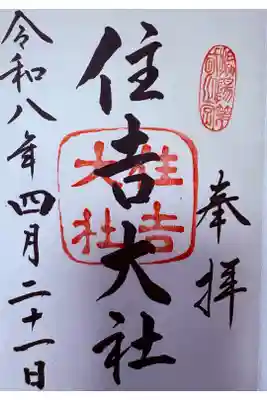 奉拝
住吉大社
住吉大社
令和八年四月二十一日